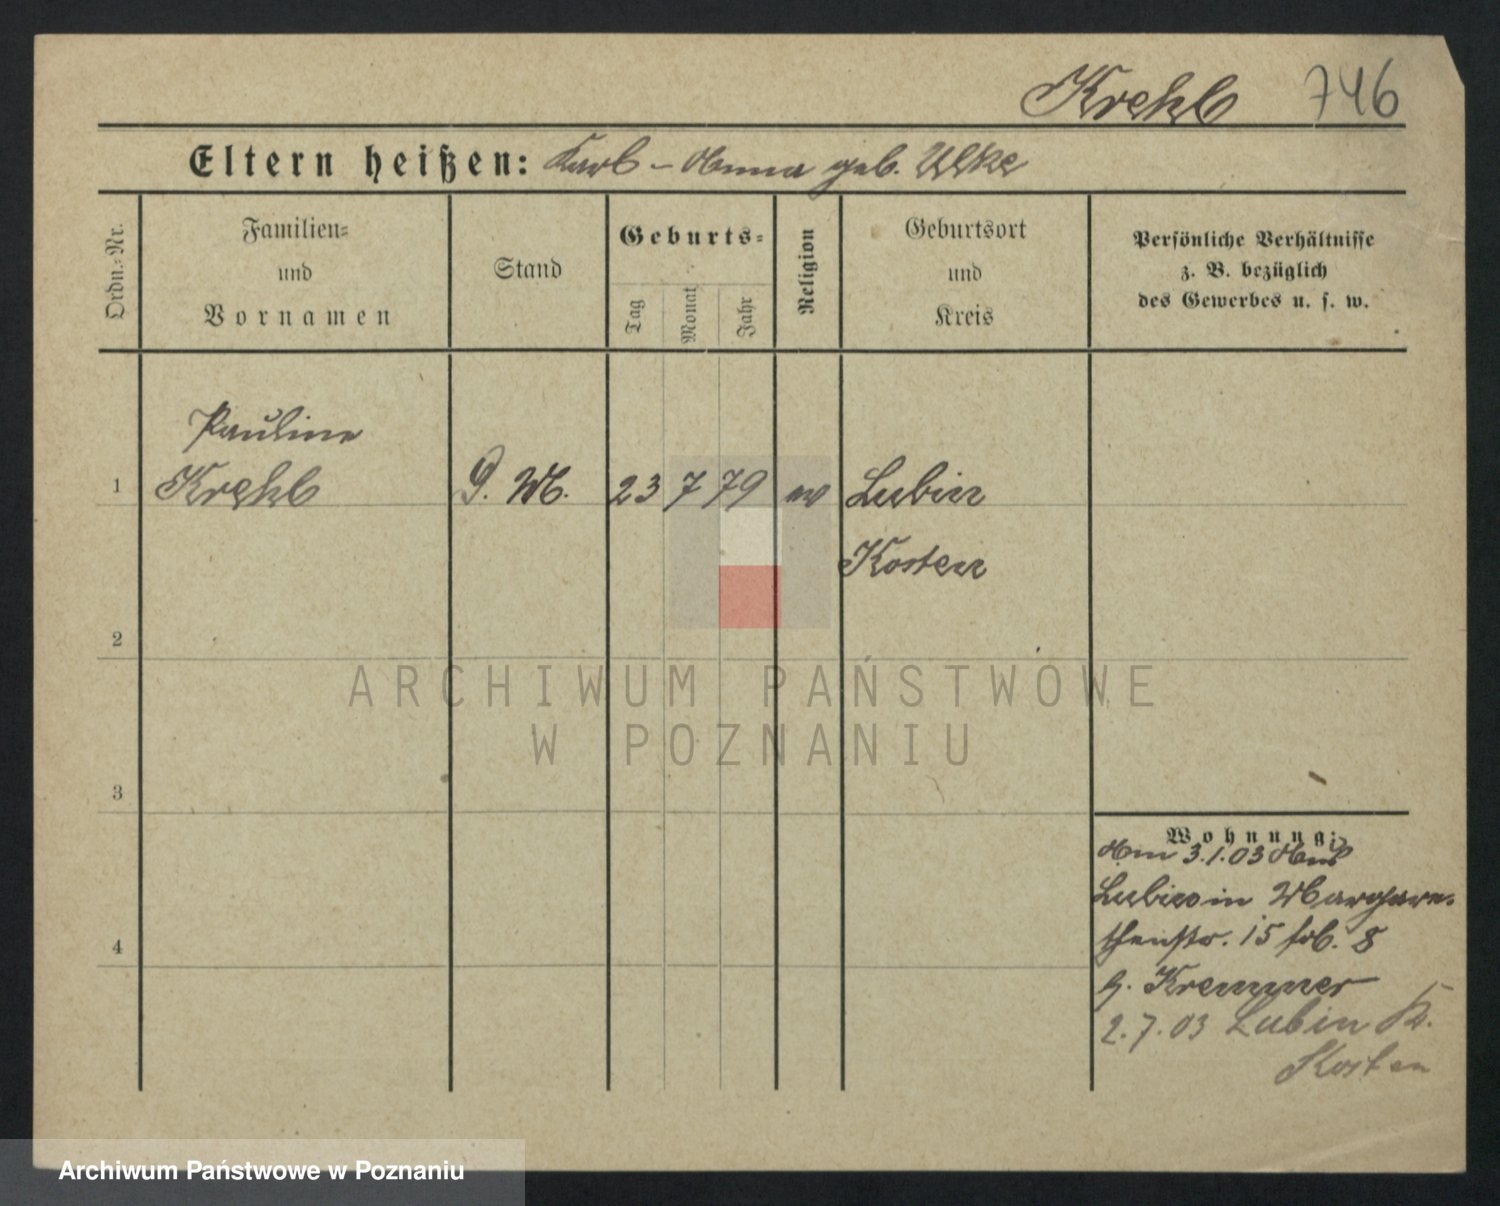 Krehl 746
Eltern heißen: Karl – Anna geb. Ulke
Ordn.-Nr.
Familien-
und
Vornamen
Stand
Geburts-
Tag
Monat
Jahr
Religion
Geburtsort
und
Kreis
Persönliche Verhältnisse
z. B. bezüglich
des Gewerbes u. s. w.
Pauline
1 Krehl D. M. 23 7 79 ev Lubin
Kosten
2
ARCHIWUM PAŃSTWOWE
W POZNANIU
3
Wohnung:
Am 3.1.03 Aus
Lubin in Margare-
thenstr. 15 8
b. Kremmer
2.7.03 Lubin K.
Kosten
4
Archiwum Państwowe w Poznaniu